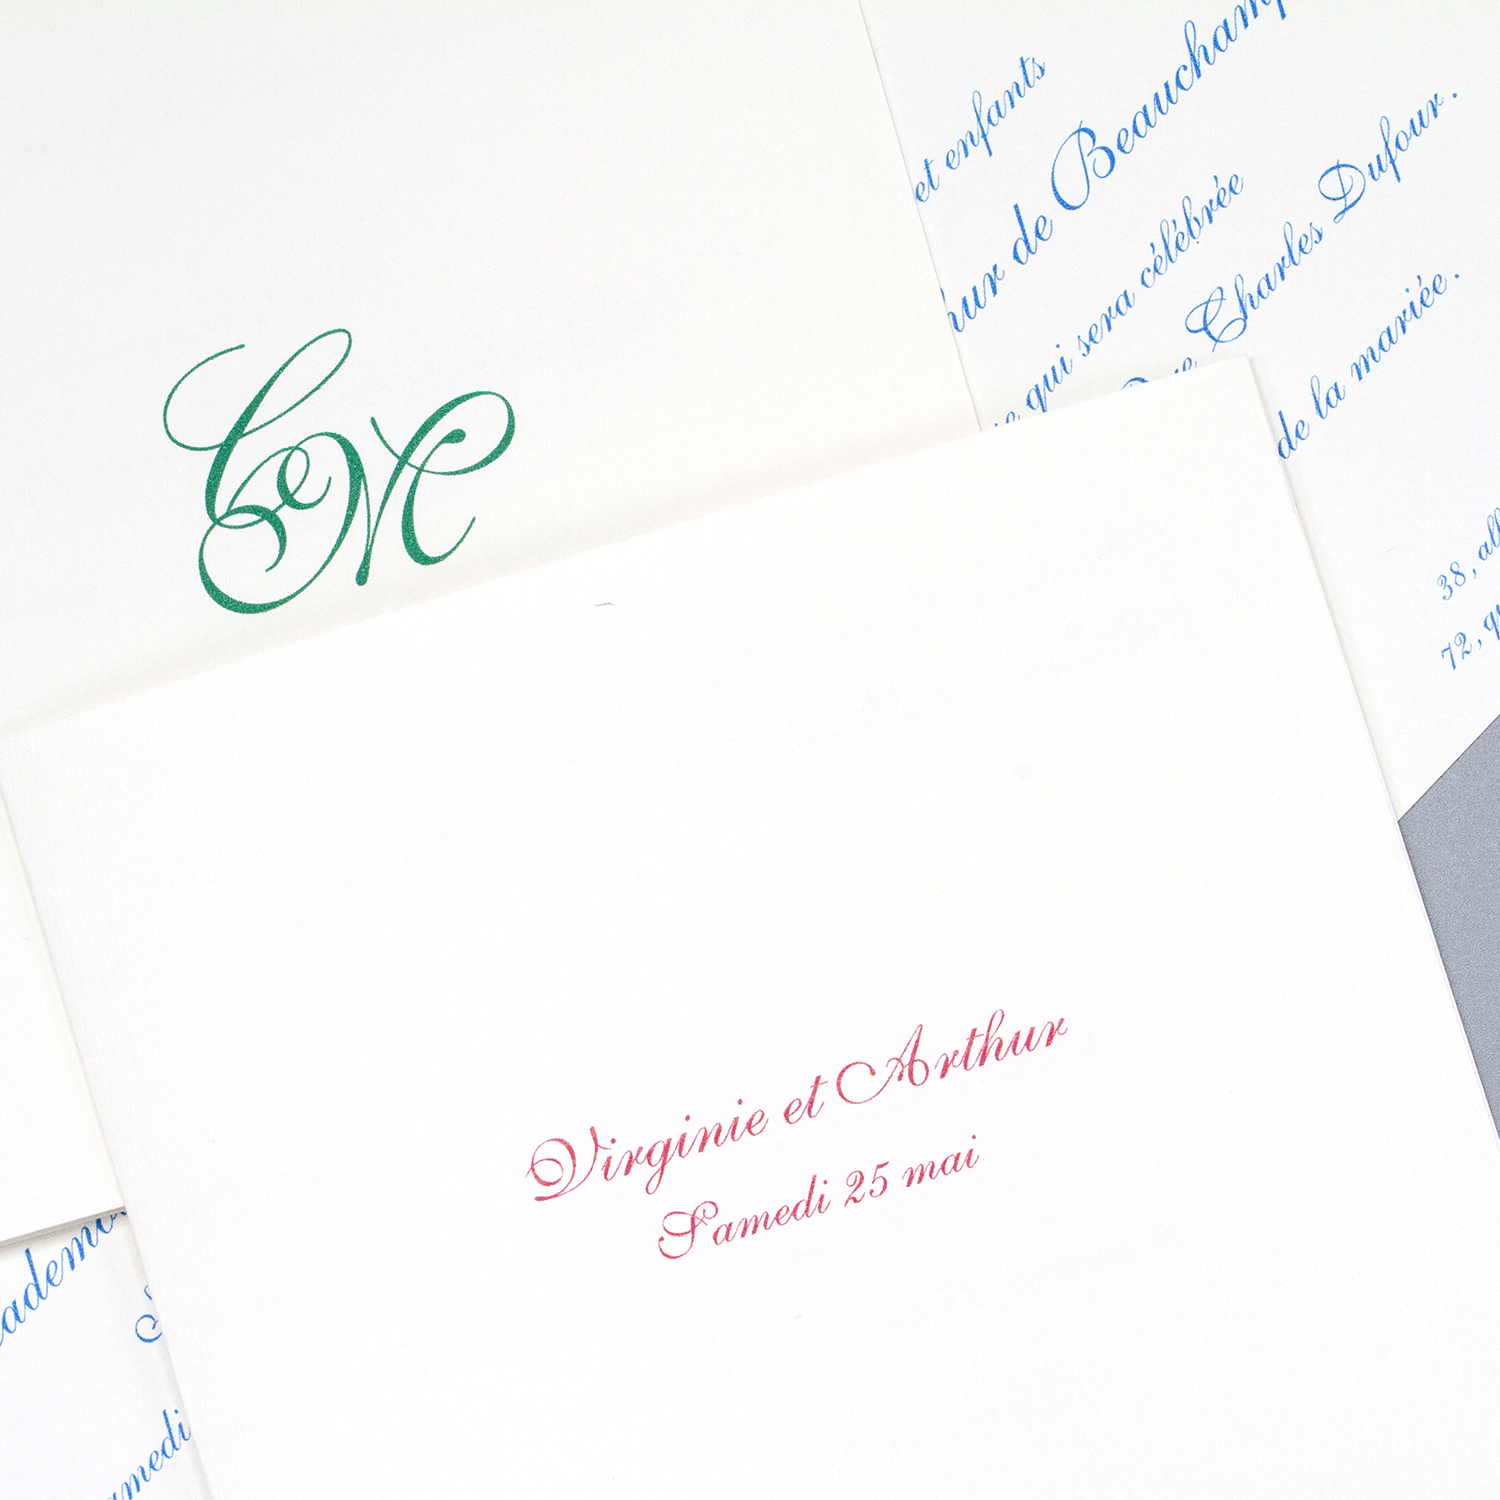 et enfants
de Beauchamp
qui sera célébrée
Charles Dufour.
de la mariée.
38,
72,
C e M
Virginie et Arthur
Samedi 25 mai